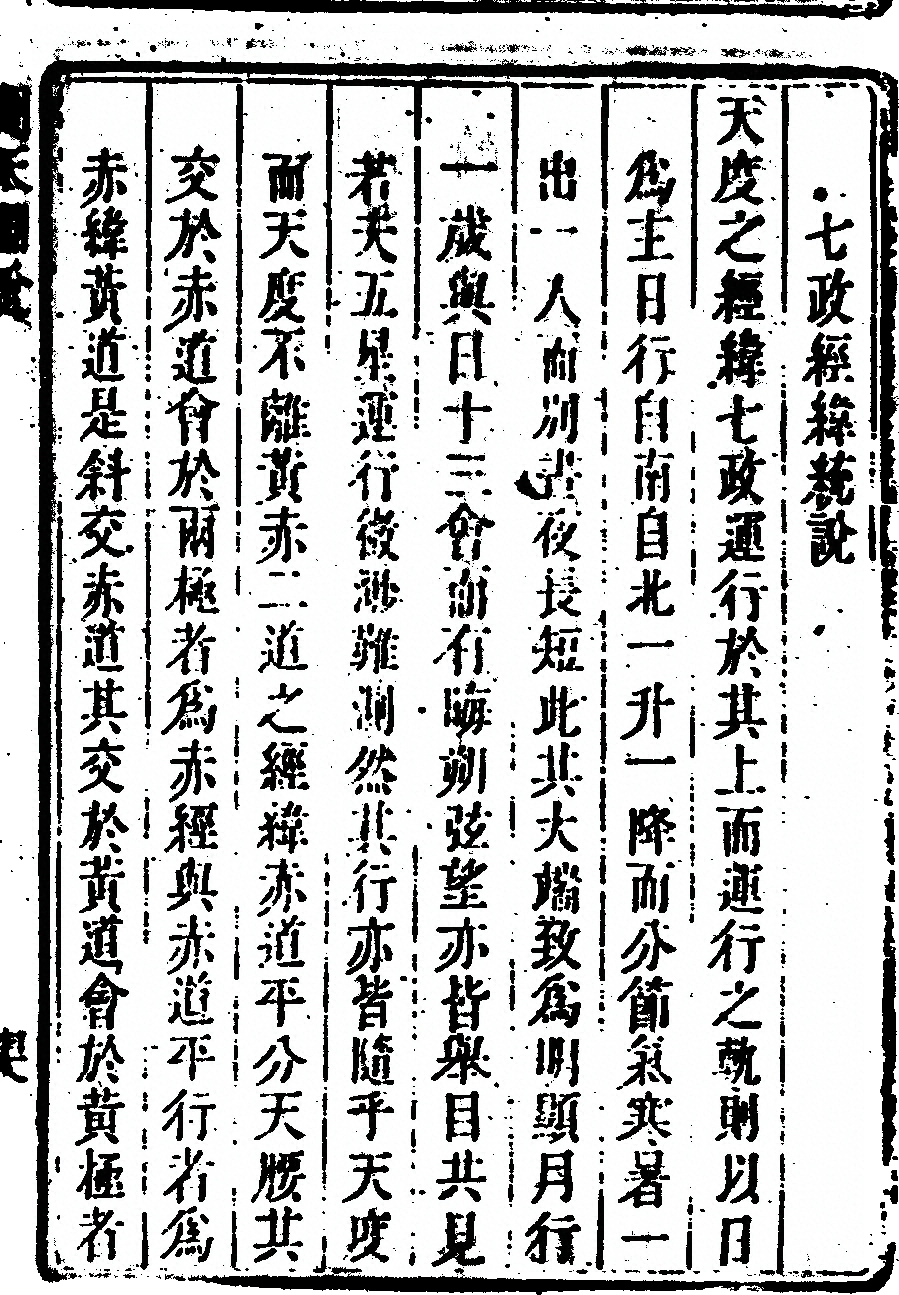 七政經緯𦂳說
天度之經緯七政運行於其上而運行之軌則以日
爲主日行自南自北一升一降而分節氣寒暑一
出一入而別晝夜長短此其大端致爲明顯月行
一歲與日十三會而有晦朔弦望亦皆舉目共見
若夫五星運行微渺難測然其行亦皆隨乎天度
而天度不離黃赤二道之經緯赤道平分天腰其
交於赤道會於兩極者爲赤經與赤道平行者爲
赤緯黃道是斜交赤道其交於黃道會於黃極者